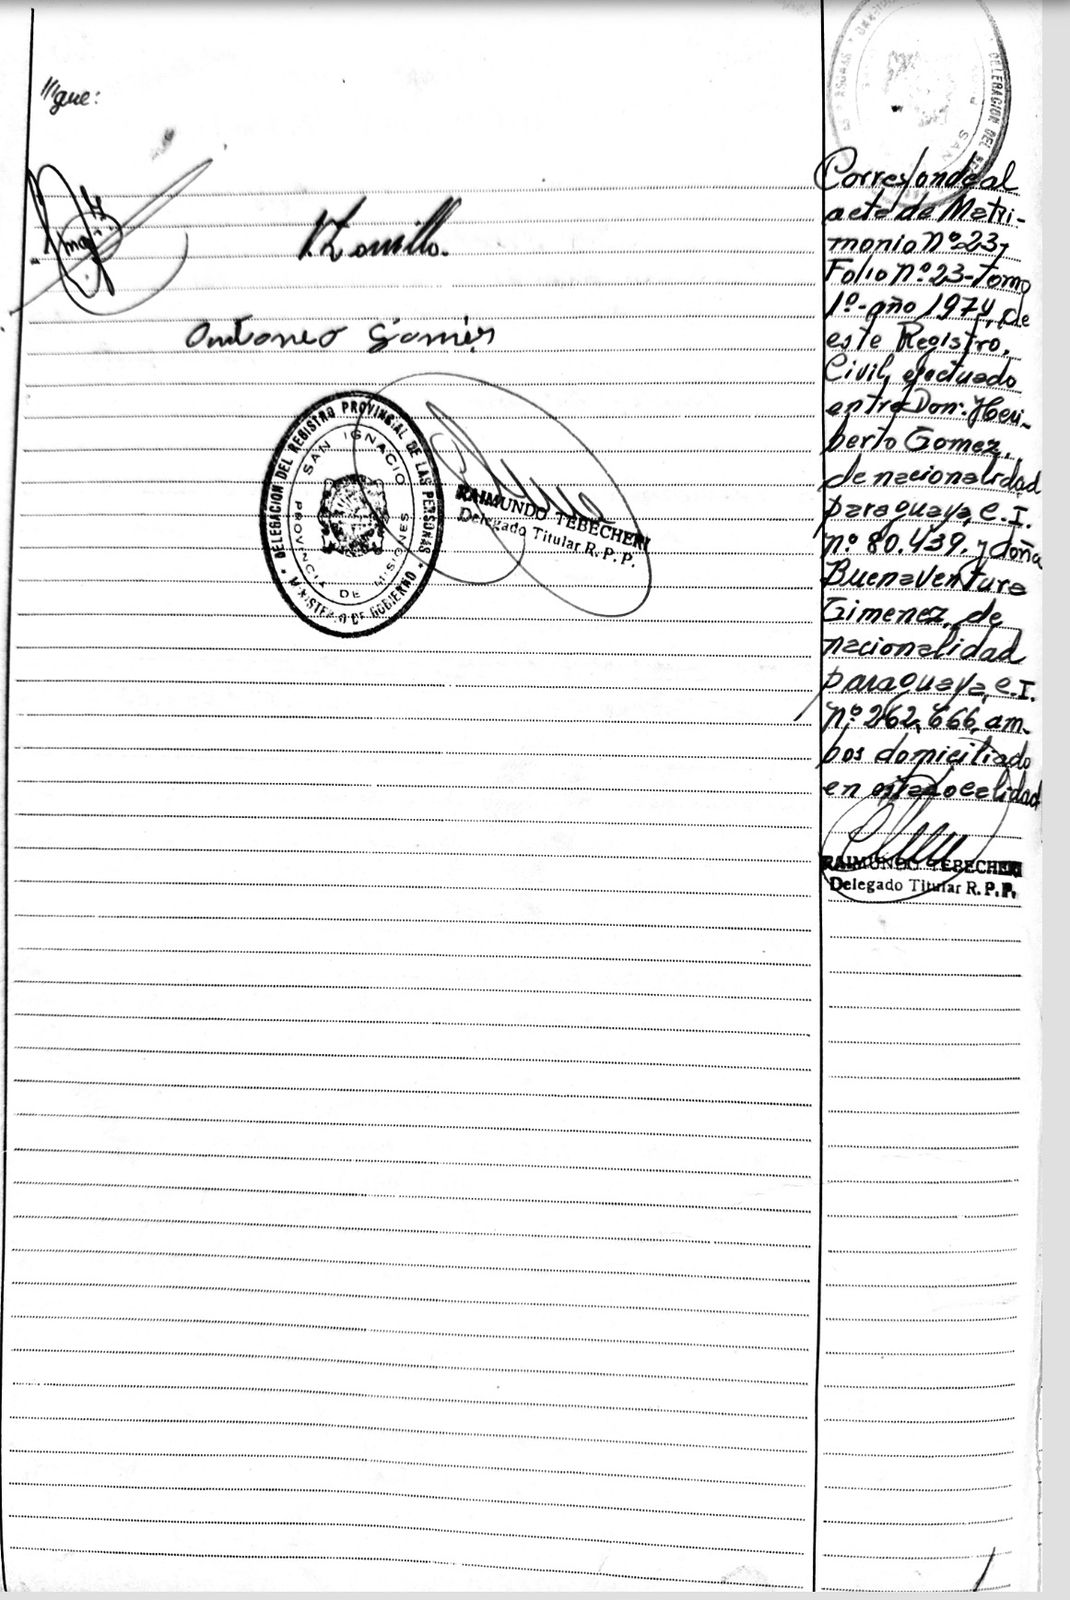 ///gue:
Antoneo Gomes
DELEGACION DEL REGISTRO PROVINCIAL DE LAS PERSONAS
MINISTERIO DE GOBIERNO
SAN IGNACIO
PROVINCIA DE MISIONES
RAIMUNDO TEBECHERI
Delegado Titular R. P. P.
Corresponde al
acta de Matri-
monio Nº 23,
Folio Nº 23-tomo
1º-año 1974, de
este Registro,
Civil, efectuado
entre Don: Heri-
berto Gomez,
de nacionalidad
paraguaya, C. I.
nº 80.439. y doña
Buenaventura
Gimenez, de
nacionalidad
paraguaya, C. I.
Nº 262,666, am-
bos domiciliado
en esta localidad
RAIMUNDO TEBECHERI
Delegado Titular R. P. P.